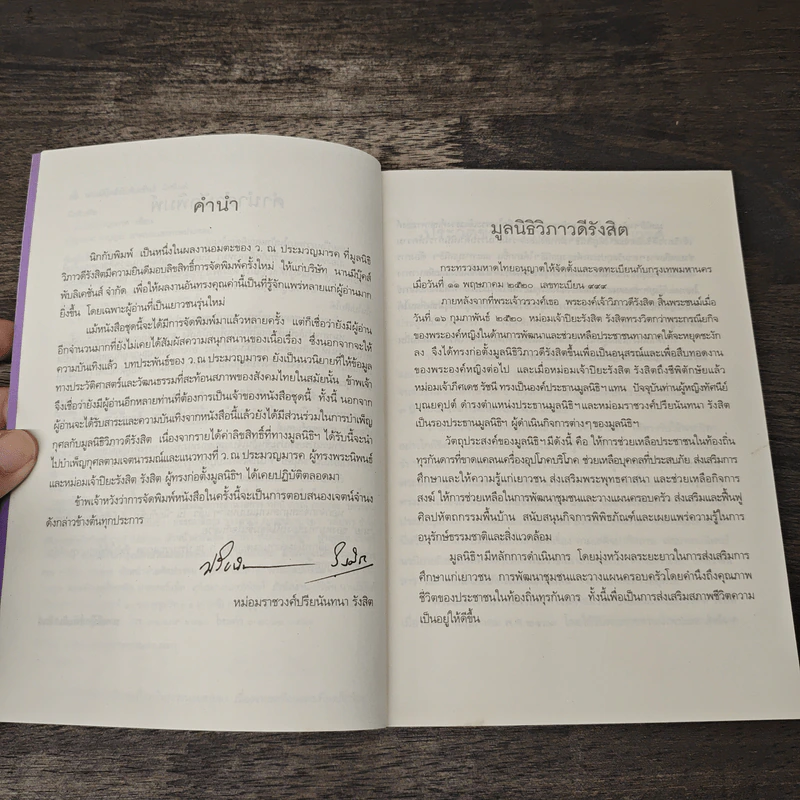 คำนำ
นิกกับพิมพ์ เป็นหนึ่งในผลงานอมตะของ ว. ณ ประมวญมารค ที่มูลนิธิ
วิภาวดีรังสิตมีความยินดีมอบลิขสิทธิ์การจัดพิมพ์ครั้งใหม่ ให้แก่บริษัท นานมีบุ๊คส์
พับลิเคชั่นส์ จำกัด เพื่อให้ผลงานอันทรงคุณค่านี้เป็นที่รู้จักแพร่หลายแก่ผู้อ่านมาก
ยิ่งขึ้น โดยเฉพาะผู้อ่านที่เป็นเยาวชนรุ่นใหม่
แม้หนังสือชุดนี้จะได้มีการจัดพิมพ์มาแล้วหลายครั้ง แต่ก็เชื่อว่ายังมีผู้อ่าน
อีกจำนวนมากที่ยังไม่เคยได้สัมผัสความสนุกสนานของเนื้อเรื่อง ซึ่งนอกจากจะให้
ความบันเทิงแล้ว บทประพันธ์ของ ว. ณ ประมวญมารค ยังเป็นนวนิยายที่ให้ข้อมูล
ทางประวัติศาสตร์และวัฒนธรรมที่สะท้อนสภาพของสังคมไทยในสมัยนั้น ข้าพเจ้า
จึงเชื่อว่ายังมีผู้อ่านอีกหลายท่านที่ต้องการเป็นเจ้าของหนังสือชุดนี้ ทั้งนี้ นอกจาก
ผู้อ่านจะได้รับสาระและความบันเทิงจากหนังสือนี้แล้วยังได้มีส่วนร่วมในการบำเพ็ญ
กุศลกับมูลนิธิวิภาวดีรังสิต เนื่องจากรายได้ค่าลิขสิทธิ์ที่ทางมูลนิธิฯ ได้รับนี้จะนำ
ไปบำเพ็ญกุศลตามเจตนารมณ์และแนวทางที่ ว. ณ ประมวญมารค ผู้ทรงพระนิพนธ์
และหม่อมเจ้าปิยะรังสิต รังสิต ผู้ทรงก่อตั้งมูลนิธิฯ ได้เคยปฏิบัติตลอดมา
ข้าพเจ้าหวังว่าการจัดพิมพ์หนังสือในครั้งนี้จะเป็นการตอบสนองเจตน์จำนง
ดังกล่าวข้างต้นทุกประการ
หม่อมราชวงศ์ปรียนันทนา รังสิต
มูลนิธิวิภาวดีรังสิต
กระทรวงมหาดไทยอนุญาตให้จัดตั้งและจดทะเบียนกับกรุงเทพมหานคร
เมื่อวันที่ ๑๑ พฤษภาคม ๒๕๒๐ เลขทะเบียน ๙๙๙
ภายหลังจากที่พระเจ้าวรวงศ์เธอ พระองค์เจ้าวิภาวดีรังสิต สิ้นพระชนม์เมื่อ
วันที่ ๑๖ กุมภาพันธ์ ๒๕๒๐ หม่อมเจ้าปิยะรังสิต รังสิตทรงวิตกว่าพระกรณียกิจ
ของพระองค์หญิงในด้านการพัฒนาและช่วยเหลือประชาชนทางภาคใต้จะหยุดชะงัก
ลง จึงได้ทรงก่อตั้งมูลนิธิวิภาวดีรังสิตขึ้นเพื่อเป็นอนุสรณ์และเพื่อสืบทอดงาน
ของพระองค์หญิงต่อไป และเมื่อหม่อมเจ้าปิยะรังสิต รังสิตถึงชีพิตักษัยแล้ว
หม่อมเจ้าภีศเดช รัชนี ทรงเป็นองค์ประธานมูลนิธิฯ แทน ปัจจุบันท่านผู้หญิงทัศนีย์
บุณยคุปต์ ดำรงตำแหน่งประธานมูลนิธิฯ และหม่อมราชวงศ์ปรียนันทนา รังสิต
เป็นรองประธานมูลนิธิฯ ผู้ดำเนินกิจการต่างๆ ของมูลนิธิฯ
วัตถุประสงค์ของมูลนิธิฯ มีดังนี้ คือ ให้การช่วยเหลือประชาชนในท้องถิ่น
ทุรกันดารที่ขาดแคลนเครื่องอุปโภคบริโภค ช่วยเหลือบุคคลที่ประสบภัย ส่งเสริมการ
ศึกษาและให้ความรู้แก่เยาวชน ส่งเสริมพระพุทธศาสนา และช่วยเหลือกิจการ
สงฆ์ ให้การช่วยเหลือในการพัฒนาชุมชนและวางแผนครอบครัว ส่งเสริมและฟื้นฟู
ศิลปหัตถกรรมพื้นบ้าน สนับสนุนกิจการพิพิธภัณฑ์และเผยแพร่ความรู้ในการ
อนุรักษ์ธรรมชาติและสิ่งแวดล้อม
มูลนิธิฯ มีหลักการดำเนินการ โดยมุ่งหวังผลระยะยาวในการส่งเสริมการ
ศึกษาแก่เยาวชน การพัฒนาชุมชนและวางแผนครอบครัวโดยคำนึงถึงคุณภาพ
ชีวิตของประชาชนในท้องถิ่นทุรกันดาร ทั้งนี้เพื่อเป็นการส่งเสริมสภาพชีวิตความ
เป็นอยู่ให้ดีขึ้น